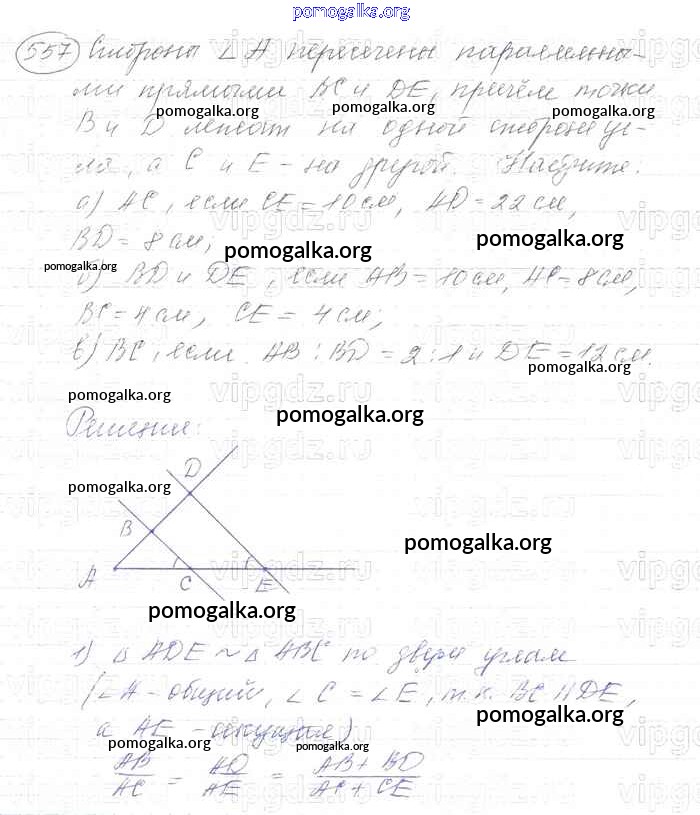 pomogalka.org
557 Стороны ∠A пересечены параллельны-
ми прямыми BC и DE, причём точки
pomogalka.org pomogalka.org pomogalka.org
B и D лежат на одной стороне уг-
ла, а C и E – на другой. Найдите:
а) AC, если CE = 10 см, AD = 22 см,
BD = 8 см;
pomogalka.org pomogalka.org
pomogalka.org
б) BD и DE, если AB = 10 см, AC = 8 см,
BC = 4 см, CE = 4 см;
в) BC, если AB : BD = 2 : 1 и DE = 12 см.
pomogalka.org
pomogalka.org
pomogalka.org
Решение:
D
pomogalka.org
B
pomogalka.org
A C E
pomogalka.org
1) △ ADE ~ △ ABC по двум углам
(∠A – общий, ∠C = ∠E, т.к. BC || DE,
pomogalka.org
а AE – секущая)
pomogalka.org pomogalka.org
AB/AC = AD/AE = AB + BD/AC + CE